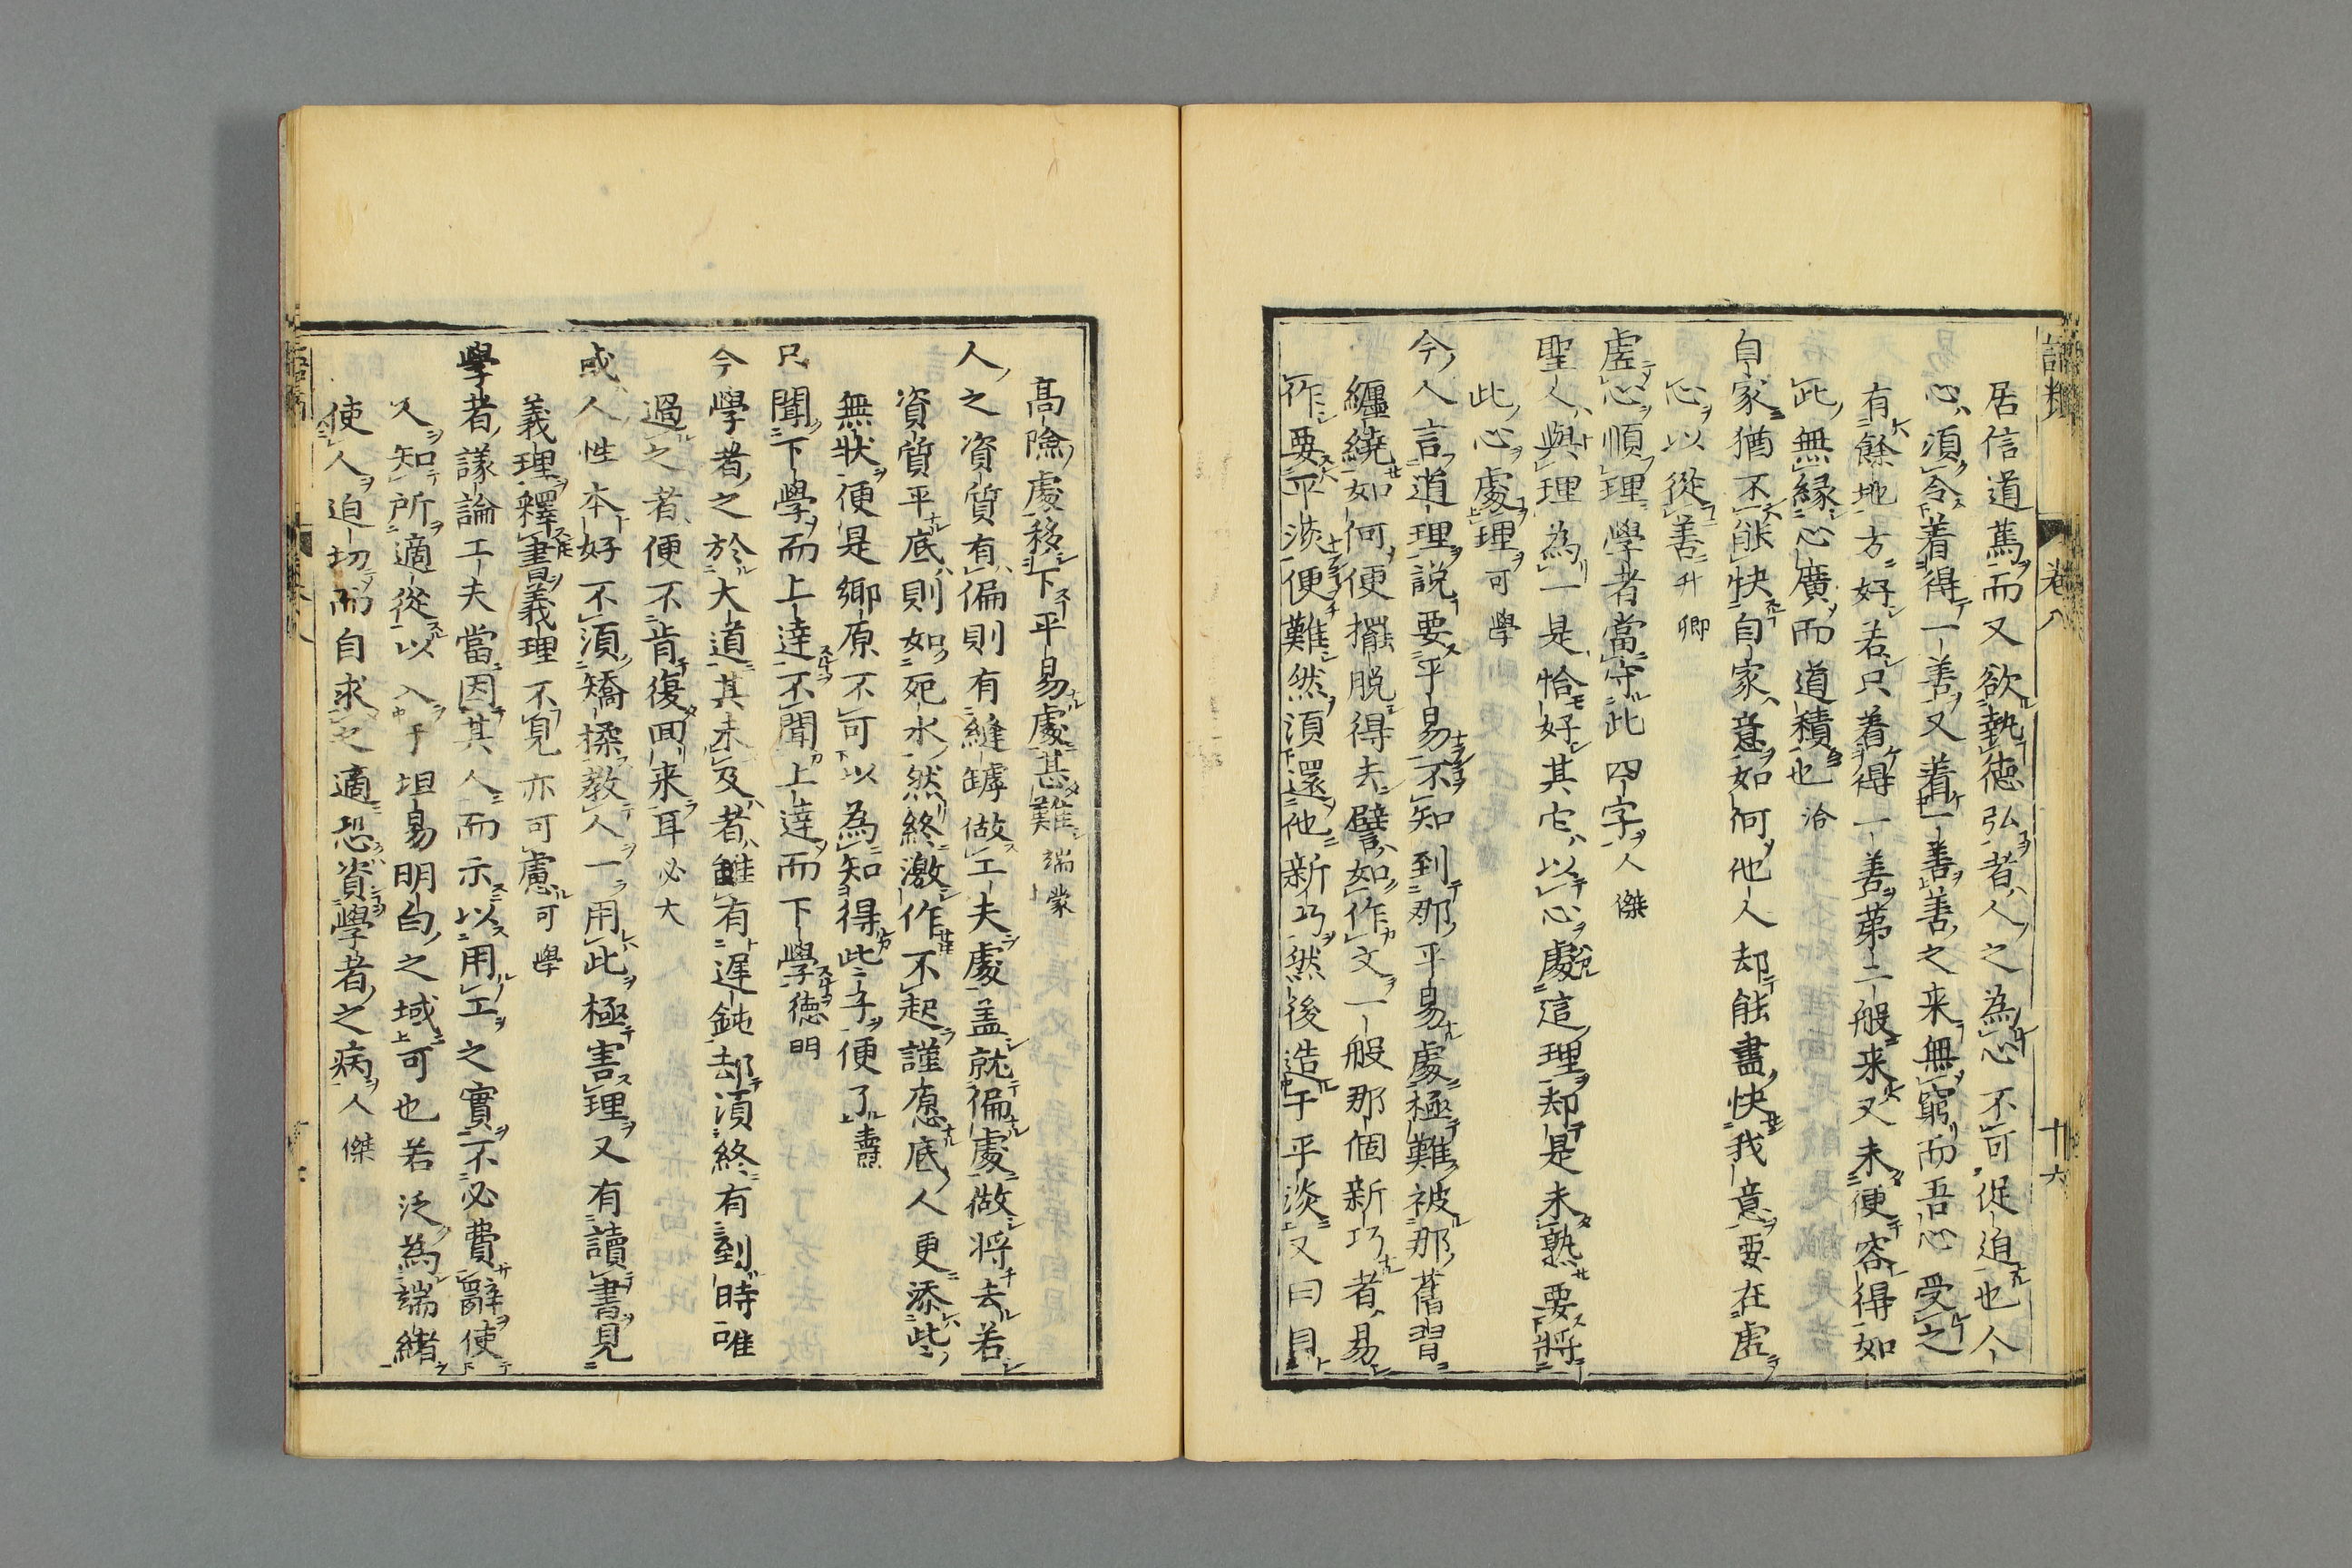 語類
卷八
十六
居信道篤而又欲執德弘者人之為心不可促迫也人
心須令着得一善又着一善善之来無窮而吾心受之
有餘地方好若只着得一善第二般来又未便容得如
此無緣心廣而道積也洽
自家猶不能快自家意如何他人却能盡快我意要在虛
心以從善升卿
虛心順理學者當守此四字人傑
聖人與理為一是恰好其它以心處這理却是未熟要將
此心處理可學
今人言道理說要平易不知到那平易處極難被那舊習
纏繞如何便擺脱得去譬如作文一般那個新巧者易
作要平淡便難然須還他新巧然後造于平淡又曰自
高險處移下平易處甚難端蒙
人之資質有偏則有縫罅做工夫處盖就偏處做將去若
資質平底則如死水然終激作不起謹愿底人更添些
無狀便是鄉原不可以為知得些子便了燾
只聞下學而上達不聞上達而下學德明
今學者之於大道其未及者雖有遲鈍却須終有到時唯
過之者便不肯復回来耳必大
或人性本好不須矯揉教人一用此極害理又有讀書見
義理釋書義理不見亦可慮可學
學者議論工夫當因其人而示以用工之實不必費辭使
人知所適從以入于坦易明白之域可也若泛為端緒
使人迫切而自求之適恐資學者之病人傑